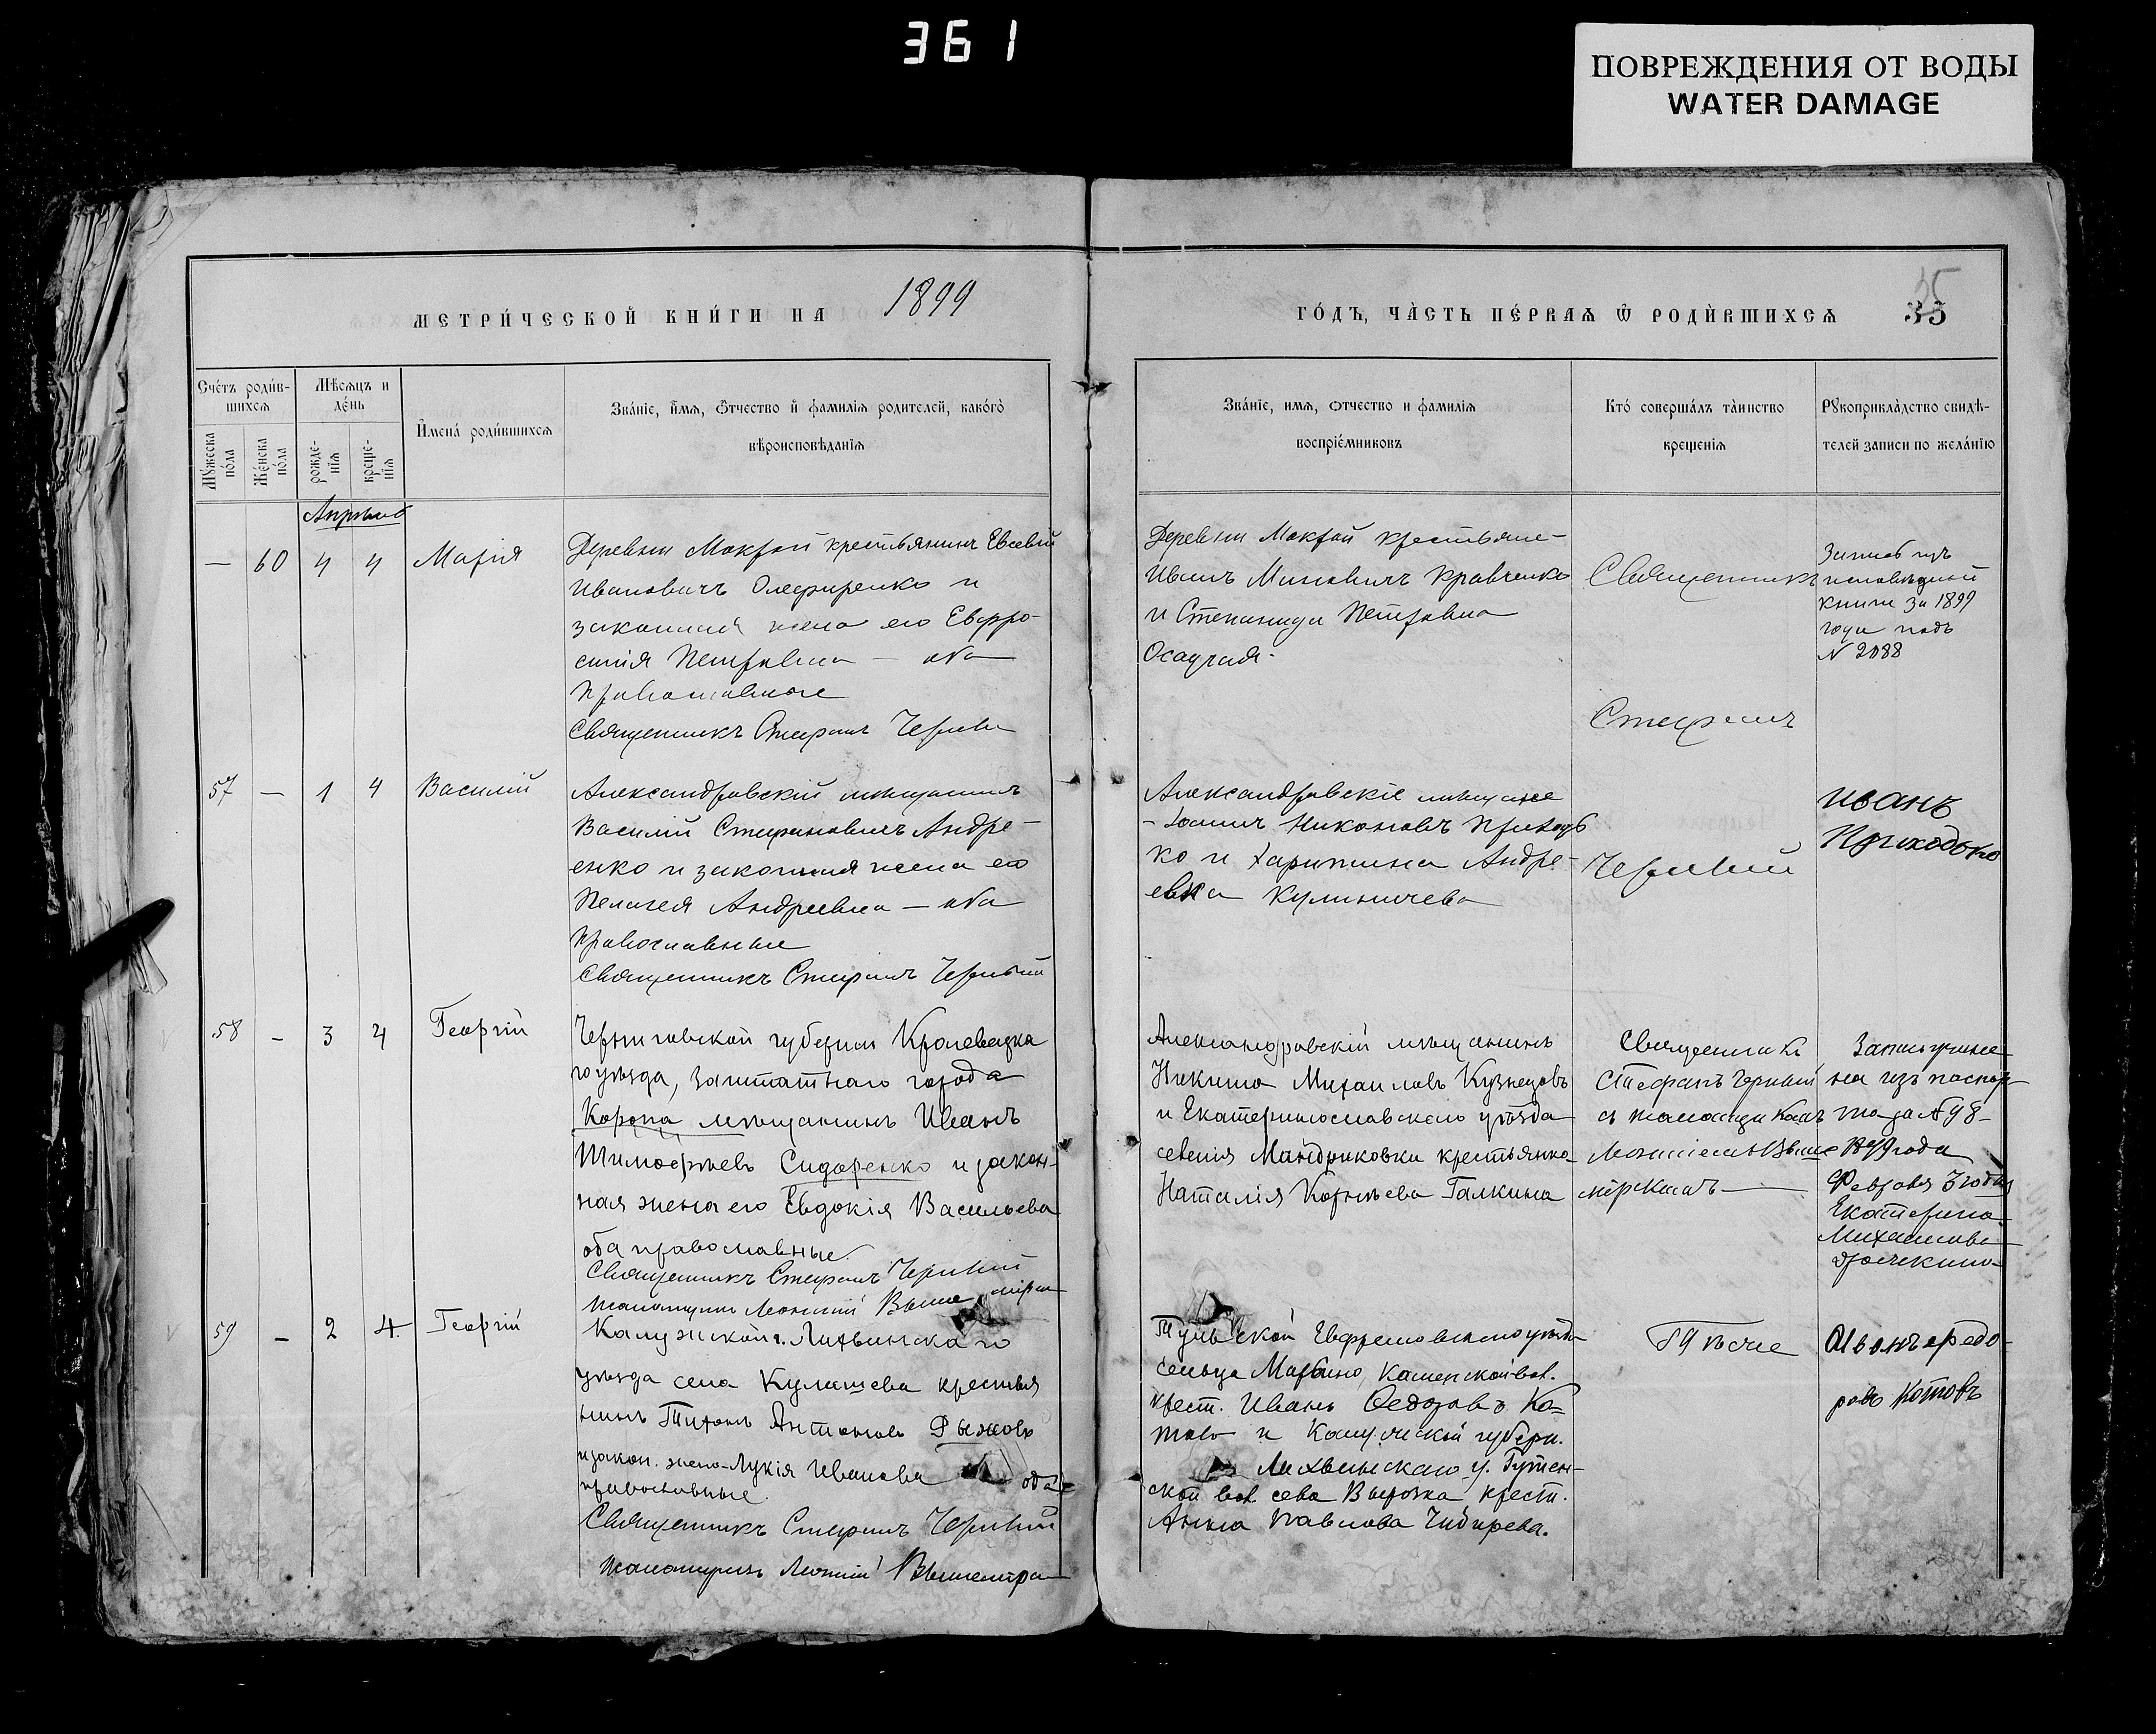 361
ПОВРЕЖДЕНИЯ ОТ ВОДЫ
WATER DAMAGE
МЕТРИ́ЧЕСКОЙ КНИ́ГИ НА 1899
ГО́ДЪ, ЧА̀СТЬ ПЕ́РВАѦ Ѿ РОДЍВШИХСѦ
35
35
Сче́тъ роди́в-
шихсѧ
Мꙋ́жеска
по́ла
Же́нска
по́ла
Мѣ́сѧцъ и
де́нь
рожде-
нїѧ
креще-
нїѧ
И҆мена́ роди́вшихсѧ
Зва́нїе, и҆́мѧ, ѻ҆́тчество и҆ фамилїѧ родителей, како́гѡ
вѣроисповѣ́данїѧ
Зва́нїе, имѧ, ѻтчество и фамилїѧ
воспрїе́мниковъ
Кто́ соверша́лъ та̀инство
креще́нїѧ
Рꙋкоприкла̀дство свидѣ-
телей записи по жела́нїю
Апрѣль
— 60 4 4 Марія
Деревни Мокрой крестьянинъ Евсевій
Ивановичъ Олефиренко и
законная жена его Евфро-
синія Петровна — оба
православные
Священникъ Стефанъ Черный
Деревни Мокрой крестьяне-
Иванъ Миновичъ Кравченко
и Степанида Петровна
Осадчая-
Священникъ
Стефанъ
Черный
Записъ изъ
исповѣдной
книги за 1899
года подъ
N 2088
57 — 1 4 Василій
Александровскій мѣщанинъ
Василій Стефановичъ Андре-
енко и законная жена его
Пелагея Андреевна — оба
православные
Священникъ Стефанъ Черный
Александровскіе мѣщане
- Іоаннъ Никоновъ Приходь
ко и Харитина Андре-
евна Кулиничева
Иванъ
Приходько
58 - 3 4 Георгій
Черниговской губерніи Кролевецка
го уѣзда, заштатнаго города
Коропа мѣщанинъ Иванъ
Тимофѣевъ Сидоренко и закон-
ная жена его Евдокія Васильева
оба православные.
Священникъ Стефанъ Черный
Псаломщикъ Леонтій
Александровскій мѣщанинъ
Никита Михаиловъ Кузнецовъ
и Екатеринославскаго уѣзда
селенія Мандриковки крестьянка
Наталія Корнѣева Галкина
Священникъ
Стефанъ Черный
съ псаломщикомъ
на изъ паспор-
та за N 98-
1899 года
Февраля 3 года
Екатерина
Михаилова
59 - 2 4. Георгій
Калужской г. Лихвинскаго
уѣзда села Кулешева крестья
нинъ Титонъ Антоновъ Рыжовъ
и закон. жена Лукія Иванова оба
православные.
Священникъ Стефанъ Черный
Псаломщикъ Леонтій
Тульской Ефремовскаго уѣзда
сельца Марьино, Каменской вол.
крест. Иванъ Ѳедоровъ Ко-
товъ и Калужской губерн.
Лихвинскаго у.
ской вол. села Вырка крест.
Анна Павлова Чибирева.
Иванъ Федо-
ровъ Котовъ